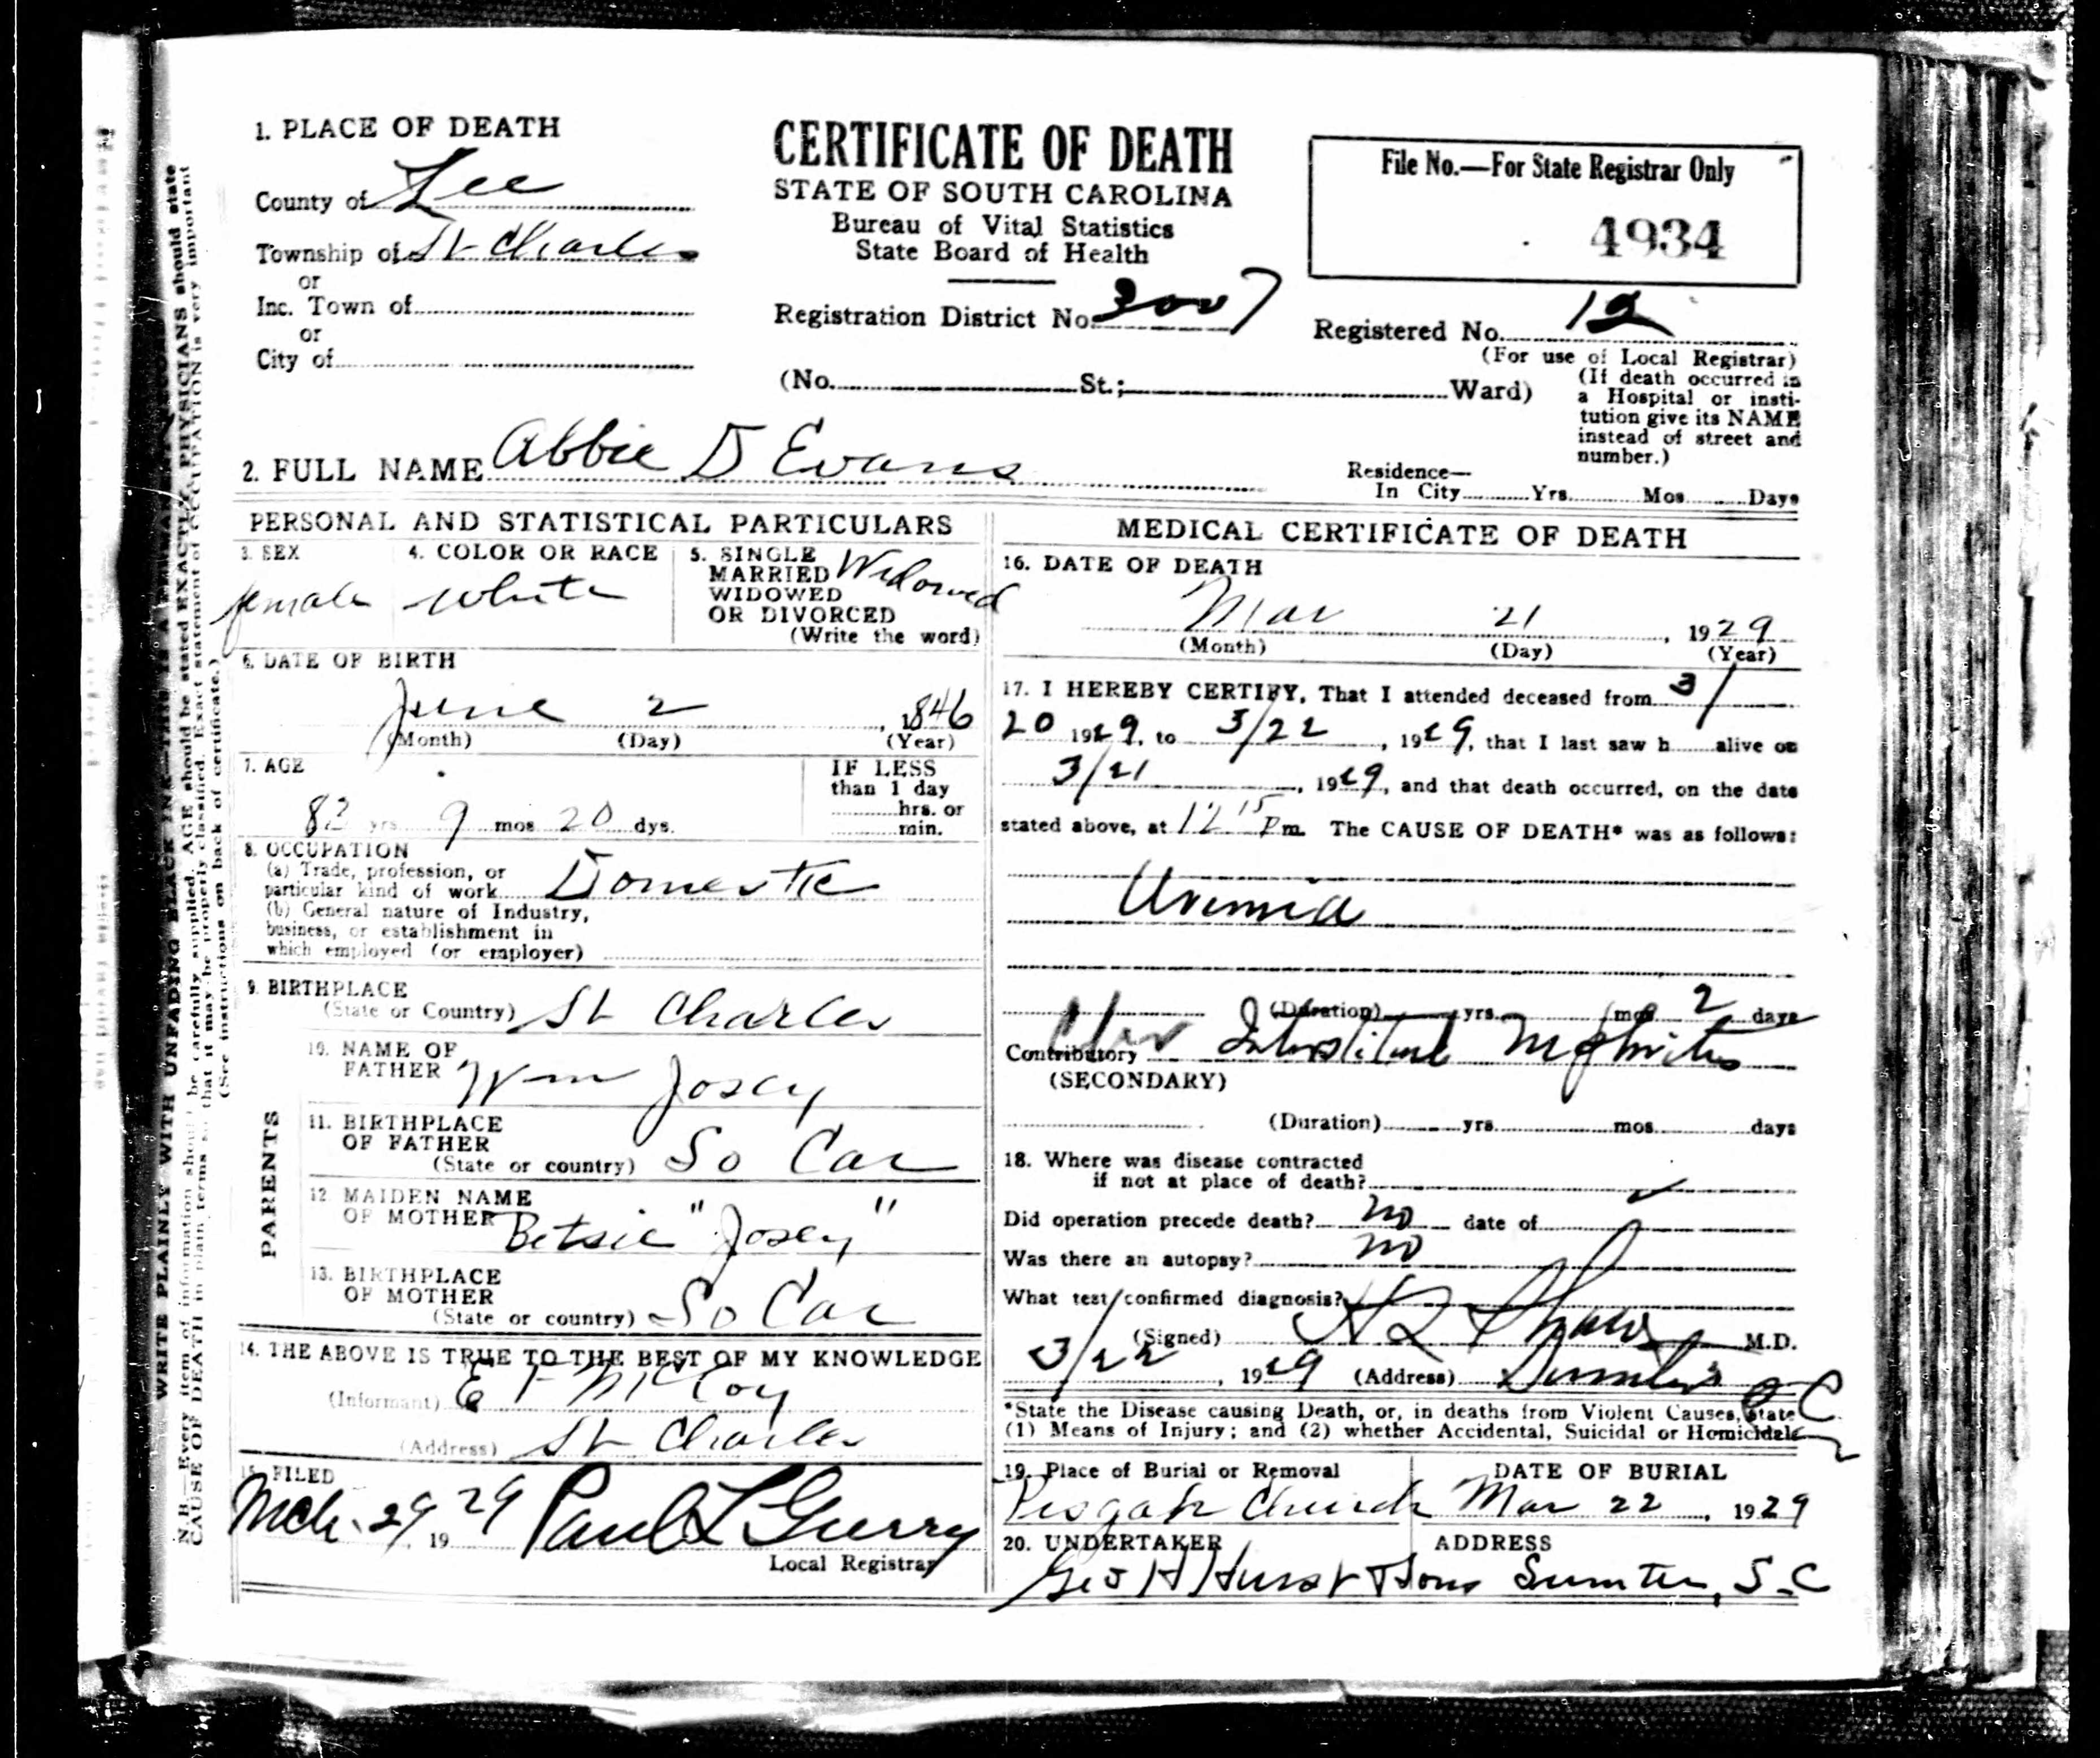 1. PLACE OF DEATH
County of Lee
Township of St Charles
or
Inc. Town of
or
City of
CERTIFICATE OF DEATH
STATE OF SOUTH CAROLINA
Bureau of Vital Statistics
State Board of Health
Registration District No. 3007
(No. St.; Ward)
File No.—For State Registrar Only
4934
Registered No. 12
(For use of Local Registrar)
(If death occurred in
a Hospital or insti-
tution give its NAME
instead of street and
number.)
2. FULL NAME Abbie D Evans
Residence—
In City Yrs. Mos. Days
PERSONAL AND STATISTICAL PARTICULARS
3. SEX
female
4. COLOR OR RACE
white
5. SINGLE
MARRIED
WIDOWED
OR DIVORCED
(Write the word)
Widowed
6. DATE OF BIRTH
June 2, 1846
(Month) (Day) (Year)
7. AGE
82 yrs. 9 mos. 20 dys.
IF LESS
than 1 day
hrs. or
min.
8. OCCUPATION
(a) Trade, profession, or
particular kind of work Domestic
(b) General nature of Industry,
business, or establishment in
which employed (or employer)
9. BIRTHPLACE
(State or Country) St Charles
PARENTS
10. NAME OF
FATHER Wm Josey
11. BIRTHPLACE
OF FATHER
(State or country) So Car
12 MAIDEN NAME
OF MOTHER Betsie "Josey"
13. BIRTHPLACE
OF MOTHER
(State or country) So Car
14. THE ABOVE IS TRUE TO THE BEST OF MY KNOWLEDGE
(Informant) E T McCoy
(Address) St Charles
15. FILED
Mch. 29 1929 Paul L Guerry
Local Registrar
MEDICAL CERTIFICATE OF DEATH
16. DATE OF DEATH
Mar 21, 1929
(Month) (Day) (Year)
17. I HEREBY CERTIFY, That I attended deceased from 3/
20 1929, to 3/22, 1929, that I last saw h alive on
3/21, 1929, and that death occurred, on the date
stated above, at 12 15 Pm. The CAUSE OF DEATH* was as follows:
Uremia
(Duration) yrs. mos 2 days
Contributory Interstitial Nephritis
(SECONDARY)
(Duration) yrs. mos. days
18. Where was disease contracted
if not at place of death?
Did operation precede death? no date of
Was there an autopsy? no
What test confirmed diagnosis?
(Signed) Shaw M.D.
3/22, 1929 (Address) Sumter S C
*State the Disease causing Death, or, in deaths from Violent Causes, state
(1) Means of Injury; and (2) whether Accidental, Suicidal or Homicidal
19. Place of Burial or Removal
Pisgah Church
DATE OF BURIAL
Mar 22, 1929
20. UNDERTAKER ADDRESS
Geo H Hurst & Sons Sumter, S.C
WRITE PLAINLY WITH UNFADING BLACK INK—THIS IS A
N.B.—Every item of information should be carefully supplied. AGE should be stated EXACTLY. PHYSICIANS should state
CAUSE OF DEATH in plain terms so that it may be properly classified. Exact statement of OCCUPATION is very important
(See instructions on back of certificate.)